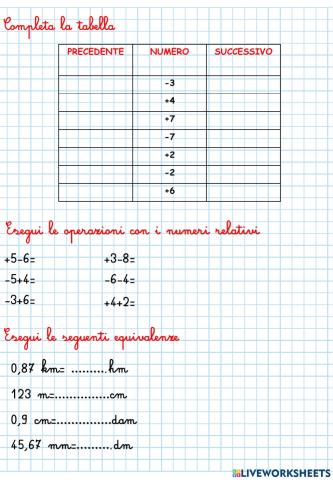 Completa la tabella
PRECEDENTE NUMERO SUCCESSIVO
-3
+4
+7
-7
+2
-2
+6
Esegui le operazioni con i numeri relativi
+5-6= +3-8=
-5+4= -6-4=
-3+6= +4+2=
Esegui le seguenti equivalenze
0,87 km= ..........hm
123 m=...............cm
0,9 cm=...............dam
45,67 mm=..........dm
LIVEWORKSHEETS